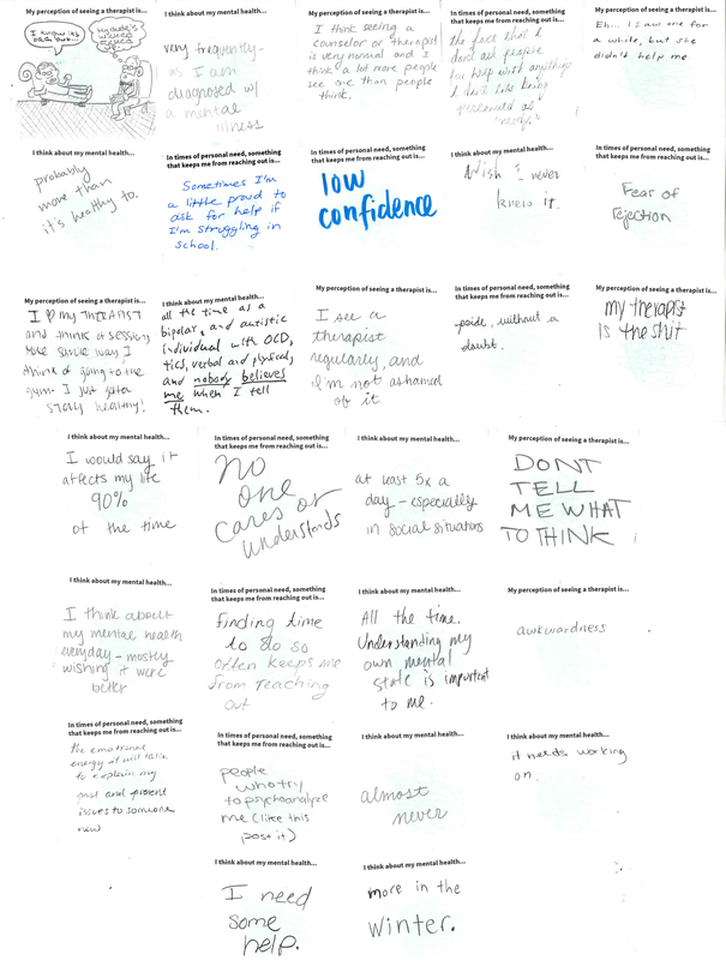 My perception of seeing a therapist is...
I know it's
I think about my mental health...
very frequently-
as I am
diagnosed w/
a mental
illness
My perception of seeing a therapist is...
I think seeing a
counselor or therapist
is very normal and I
think a lot more people
see one than people
think.
In times of personal need, something
that keeps me from reaching out is...
the fact that I
don't ask people
for help with anything
I don't like being
perceived as
"needy."
My perception of seeing a therapist is...
Eh... I saw one for
a while, but she
didn't help me
I think about my mental health...
probably
more than
it's healthy to.
In times of personal need, something
that keeps me from reaching out is...
Sometimes I'm
a little proud to
ask for help if
I'm struggling in
school.
In times of personal need, something
that keeps me from reaching out is...
low
confidence
I think about my mental health...
Wish I never
knew it.
In times of personal need, something
that keeps me from reaching out is...
Fear of
rejection
My perception of seeing a therapist is...
I ♡ my THERAPIST
and think of sessions
the same way I
think of going to the
gym. I just gotta
stay healthy!
I think about my mental health...
all the time as a
bipolar, and autistic
individual with OCD,
tics, verbal and physical,
and nobody believes
me when I tell
them.
My perception of seeing a therapist is...
I see a
therapist
regularly, and
I'm not ashamed
of it
In times of personal need, something
that keeps me from reaching out is...
pride, without a
doubt.
My perception of seeing a therapist is...
my therapist
is the shit
I think about my mental health...
I would say it
affects my life
90%
of the time
In times of personal need, something
that keeps me from reaching out is...
no
one
cares or
understands
I think about my mental health...
at least 5x a
day - especially
in social situations
My perception of seeing a therapist is...
DONT
TELL
ME WHAT
TO THINK
I think about my mental health...
I think about
my mental health
everyday - mostly
wishing it were
better
In times of personal need, something
that keeps me from reaching out is...
finding time
to do so
often keeps me
from reaching
out
I think about my mental health...
All the time.
Understanding my
own mental
state is important
to me.
My perception of seeing a therapist is...
awkwardness
In times of personal need, something
that keeps me from reaching out is...
the emotional
energy it will take
to explain my
past and present
issues to someone
new
In times of personal need, something
that keeps me from reaching out is...
people
who try
to psychoanalyze
me (like this
post it)
I think about my mental health...
almost
never
I think about my mental health...
it needs working
on.
I think about my mental health...
I need
some
help.
I think about my mental health...
more in the
winter.